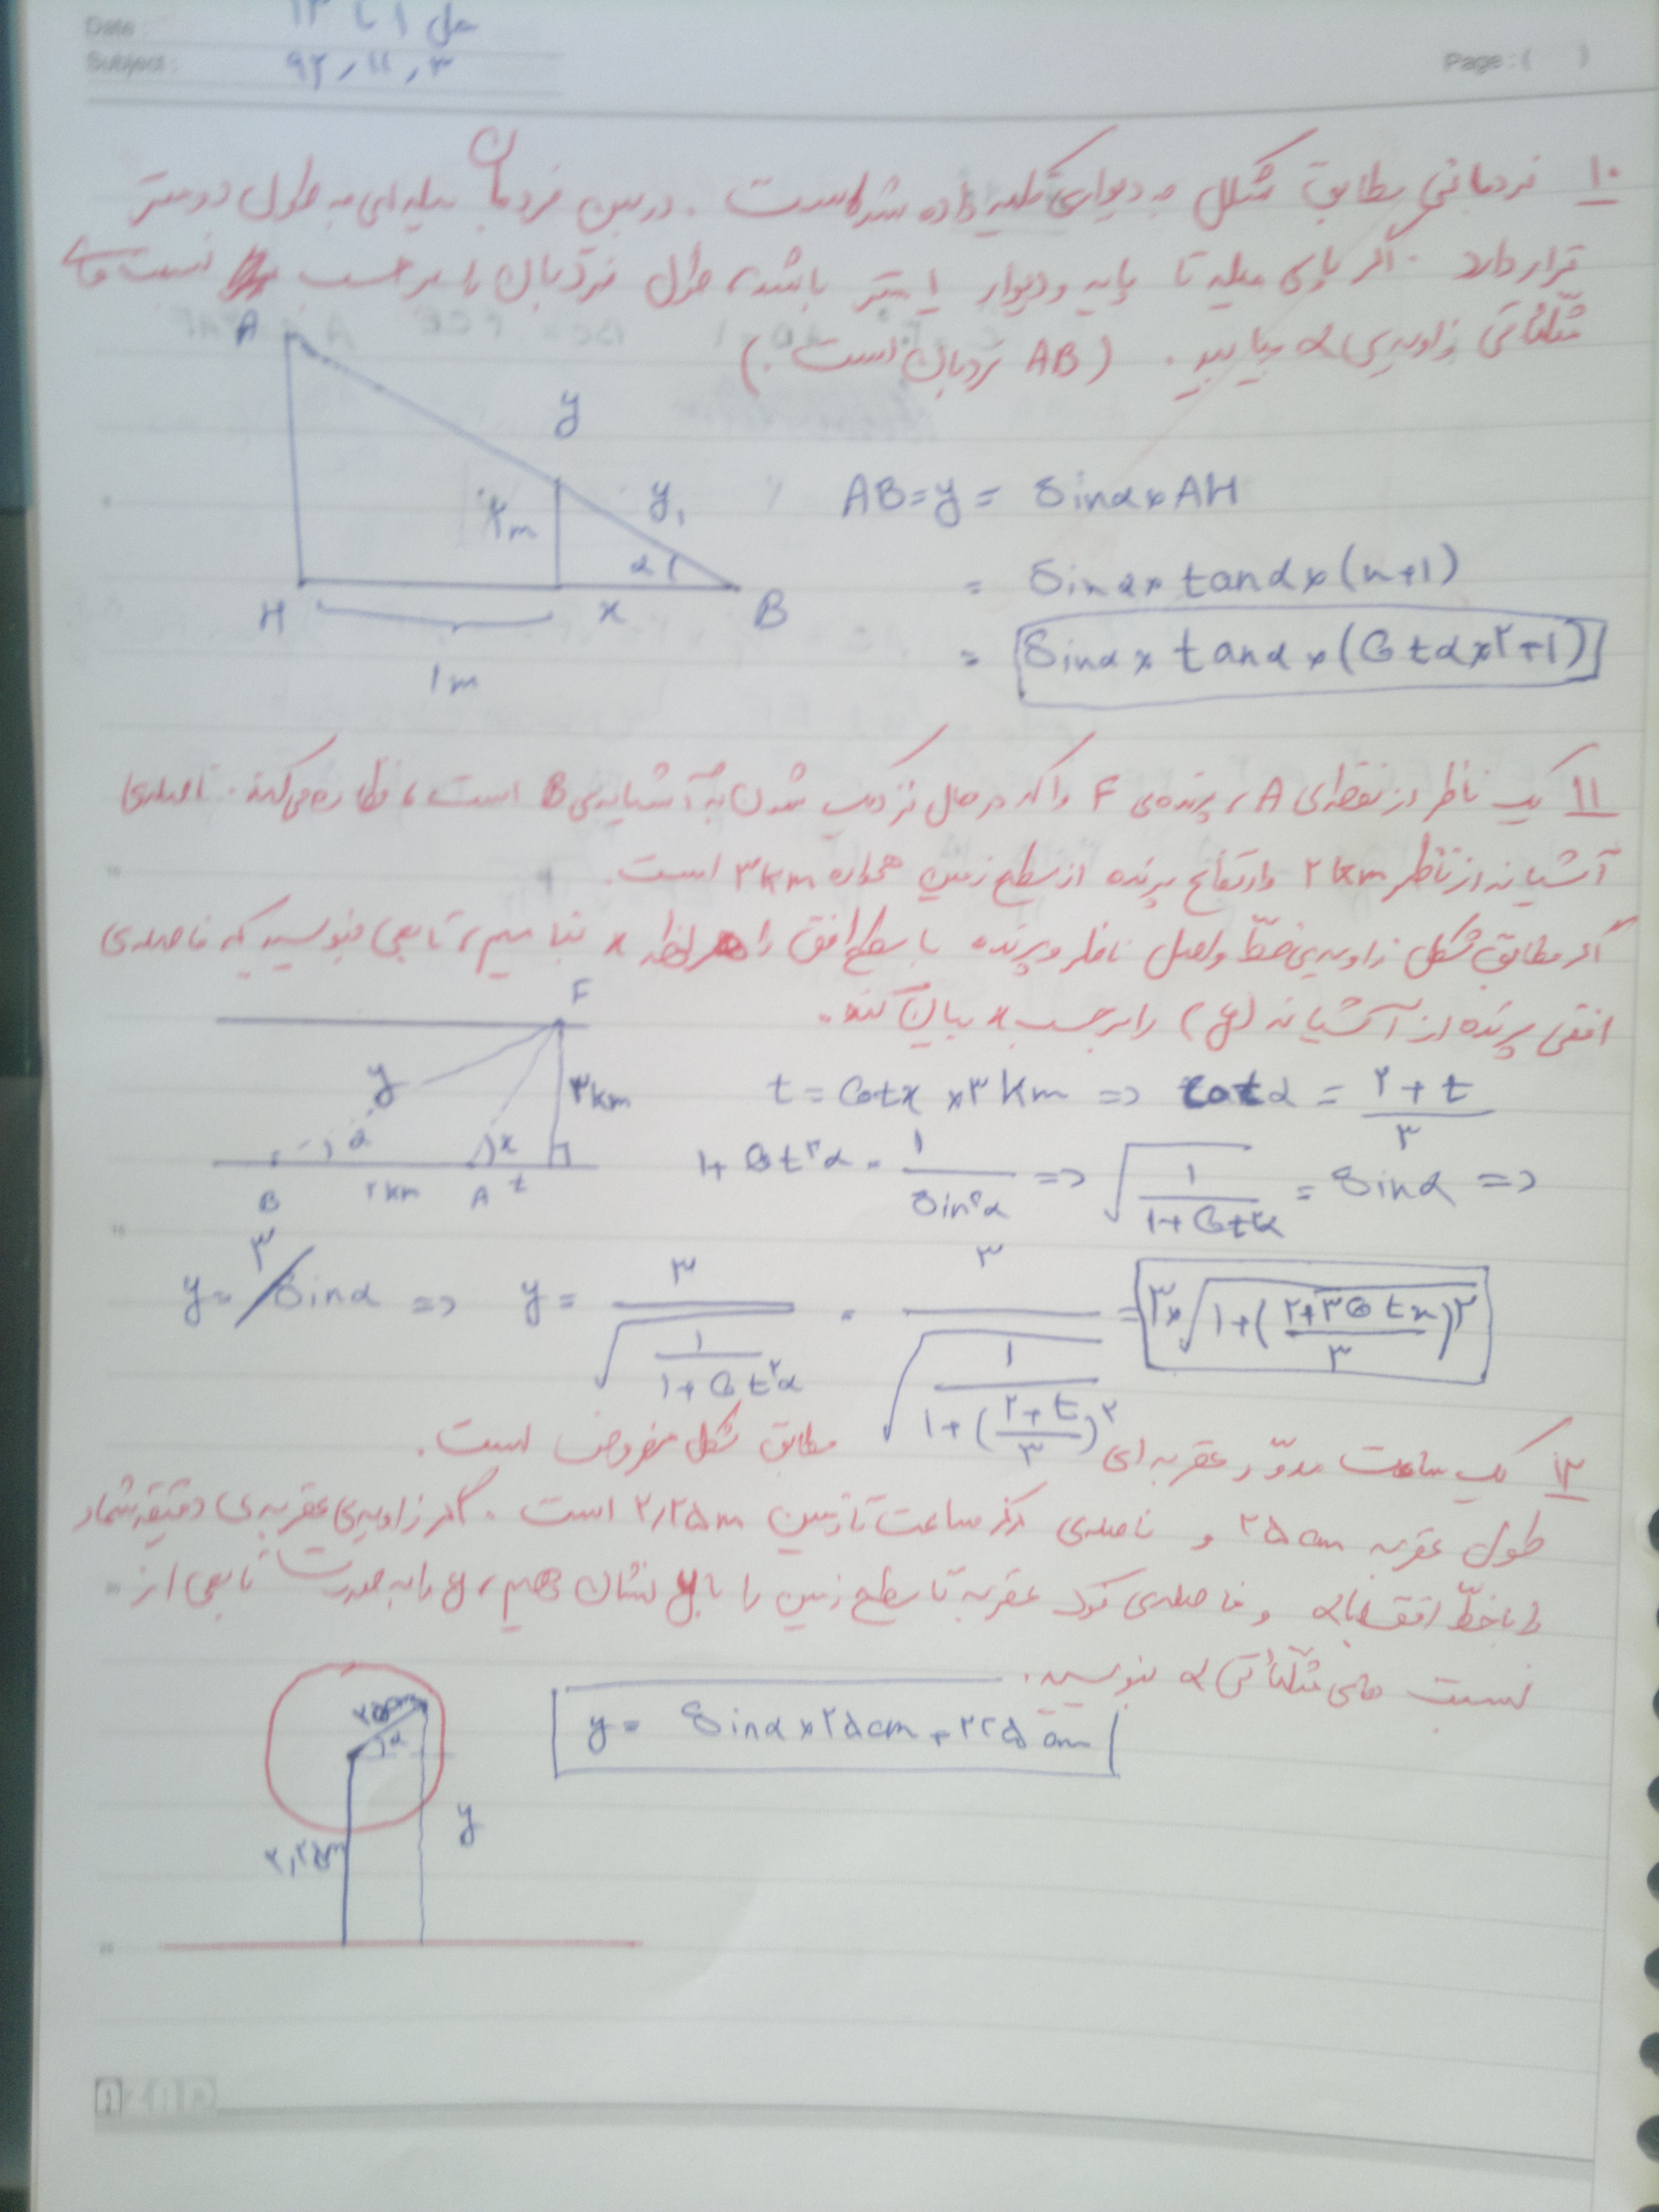 Date: حل ۱ تا ۱۲
Subject: ۹۲,۱۱,۳
Page: ( )
۱۰ نردبانی مطابق شکل به دیواری تکیه داده شده است. در بین نردبان میله‌ای به طول دو متر
قرار دارد. اگر پای میله تا پایه دیوار ۱ متر باشد، طول نردبان را بر حسب نسبت های
مثلثاتی زاویه‌ی α بیابید. (AB نردبان است.)
A
y
۲m
y₁
α
H
x
B
۱m
AB=y= Sinα×AH
= Sinα×tanα×(x+۱)
= Sinα×tanα×(Cotα×۲+۱)
۱۱ یک ناظر از نقطه‌ی A، پرنده‌ی F را که در حال نزدیک شدن به آشیانه‌ی B است، نظاره می‌کند. فاصله‌ی
آشیانه از ناظر ۲km و ارتفاع پرنده از سطح زمین همواره ۳km است.
اگر مطابق شکل زاویه‌ی خطّ واصل ناظر و پرنده با سطح افق را هر لحظه x بنامیم، تابعی بنویسید که فاصله‌ی
افقی پرنده از آشیانه (y) را بر حسب x بیان کند.
F
y
۳km
α
x
B
۲km
A
t
t = Cotx ×۳km => Cotα = (۲+t)/۳
۱+Cot²α = ۱/Sin²α => √(۱/(۱+Cot²α)) = Sinα =>
y = ۳/Sinα => y = ۳/√(۱/(۱+Cot²α)) = ۳/√(۱/(۱+((۲+t)/۳)²)) = ۳×√(۱+((۲+۳Cotx)/۳)²)
۱۲ یک ساعت مدوّر عقربه‌ای مطابق شکل مفروض است.
طول عقربه ۲۵cm و فاصله‌ی مرکز ساعت تا زمین ۲٫۲۵m است. اگر زاویه‌ی عقربه‌ی دقیقه‌شمار
را با خطّ افق با α و فاصله‌ی نوک عقربه تا سطح زمین را با y نشان دهیم، y را به صورت تابعی از
نسبت های مثلثاتی α بنویسید.
۲۵cm
α
y
۲٫۲۵m
y = Sinα×۲۵cm+۲۲۵cm
AZAD